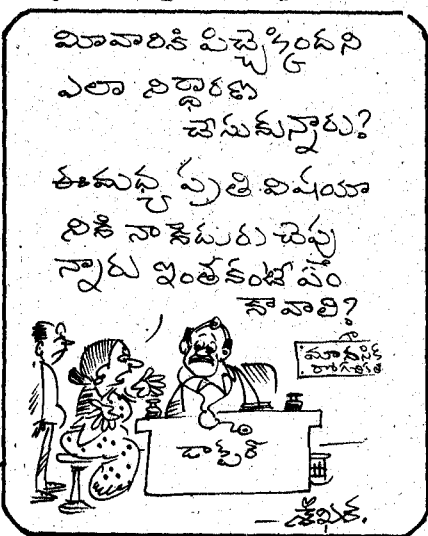 మీవారికి పిచ్చెక్కిందని
ఎలా నిర్ధారణ
చేసుకున్నారు?
ఈమధ్య ప్రతి విషయా
నికి నా కెదురు చెప్తు
న్నారు ఇంతకంటే ఏం
కావాలి?
మానసిక
డాక్టర్